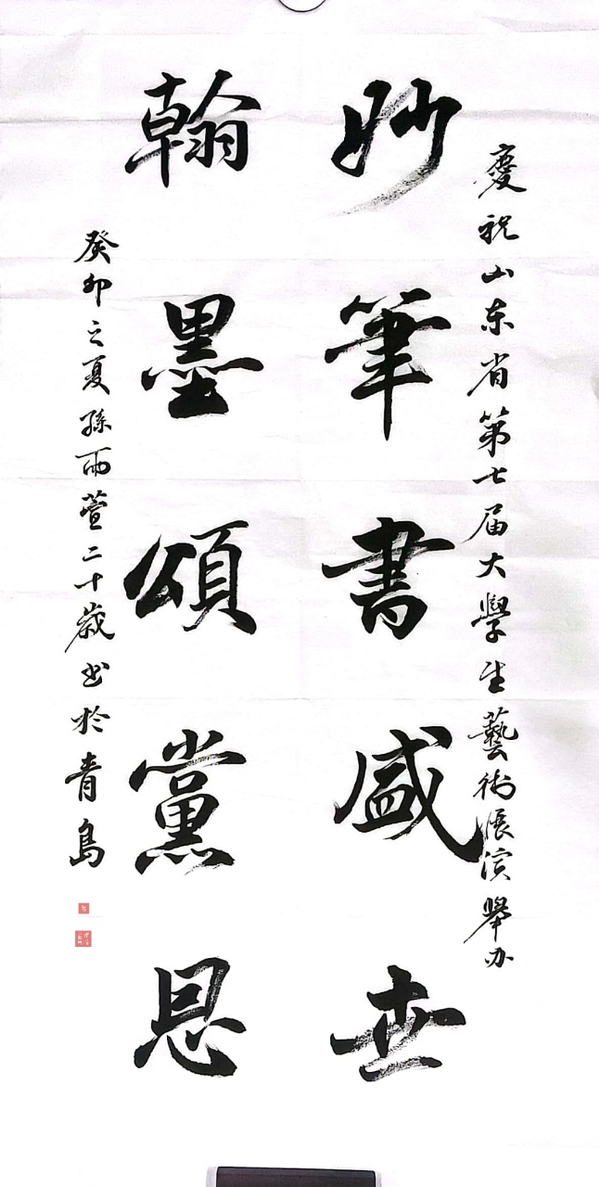 慶祝山东省第七届大學生藝術展演舉办
妙筆書盛世
翰墨頌黨恩
癸卯之夏孫雨萱二十歲书於青島